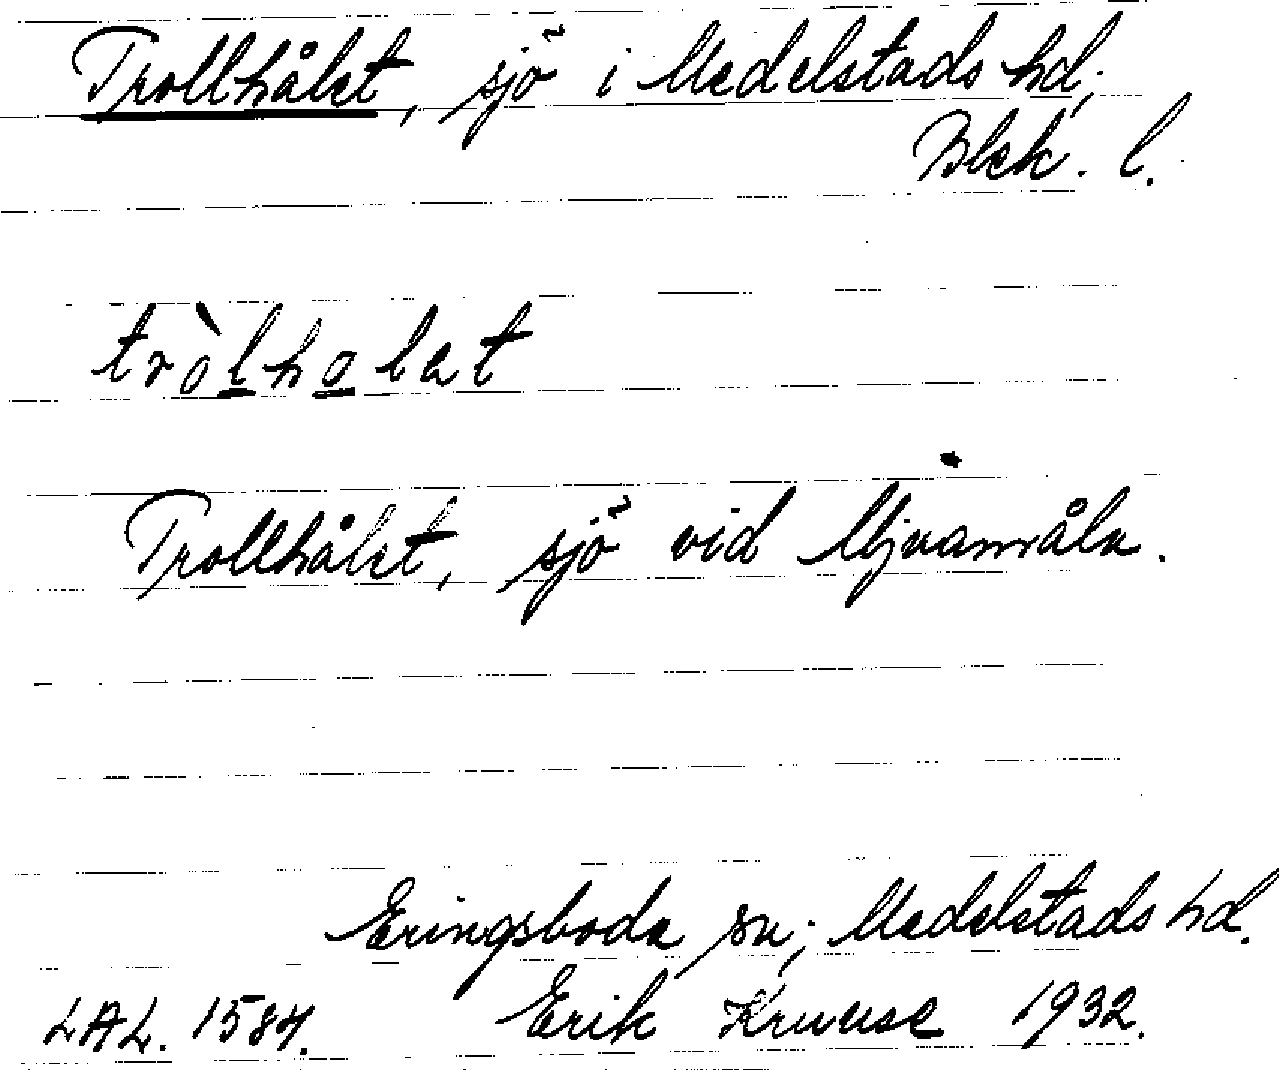 Trollhålet, sjö i Medelstads hd,
Blek. l.
tròlholet
Trollhålet, sjö vid Mjuamåla.
Eringsboda sn; Medelstads hd.
LAL. 1584. Erik Kruuse 1932.